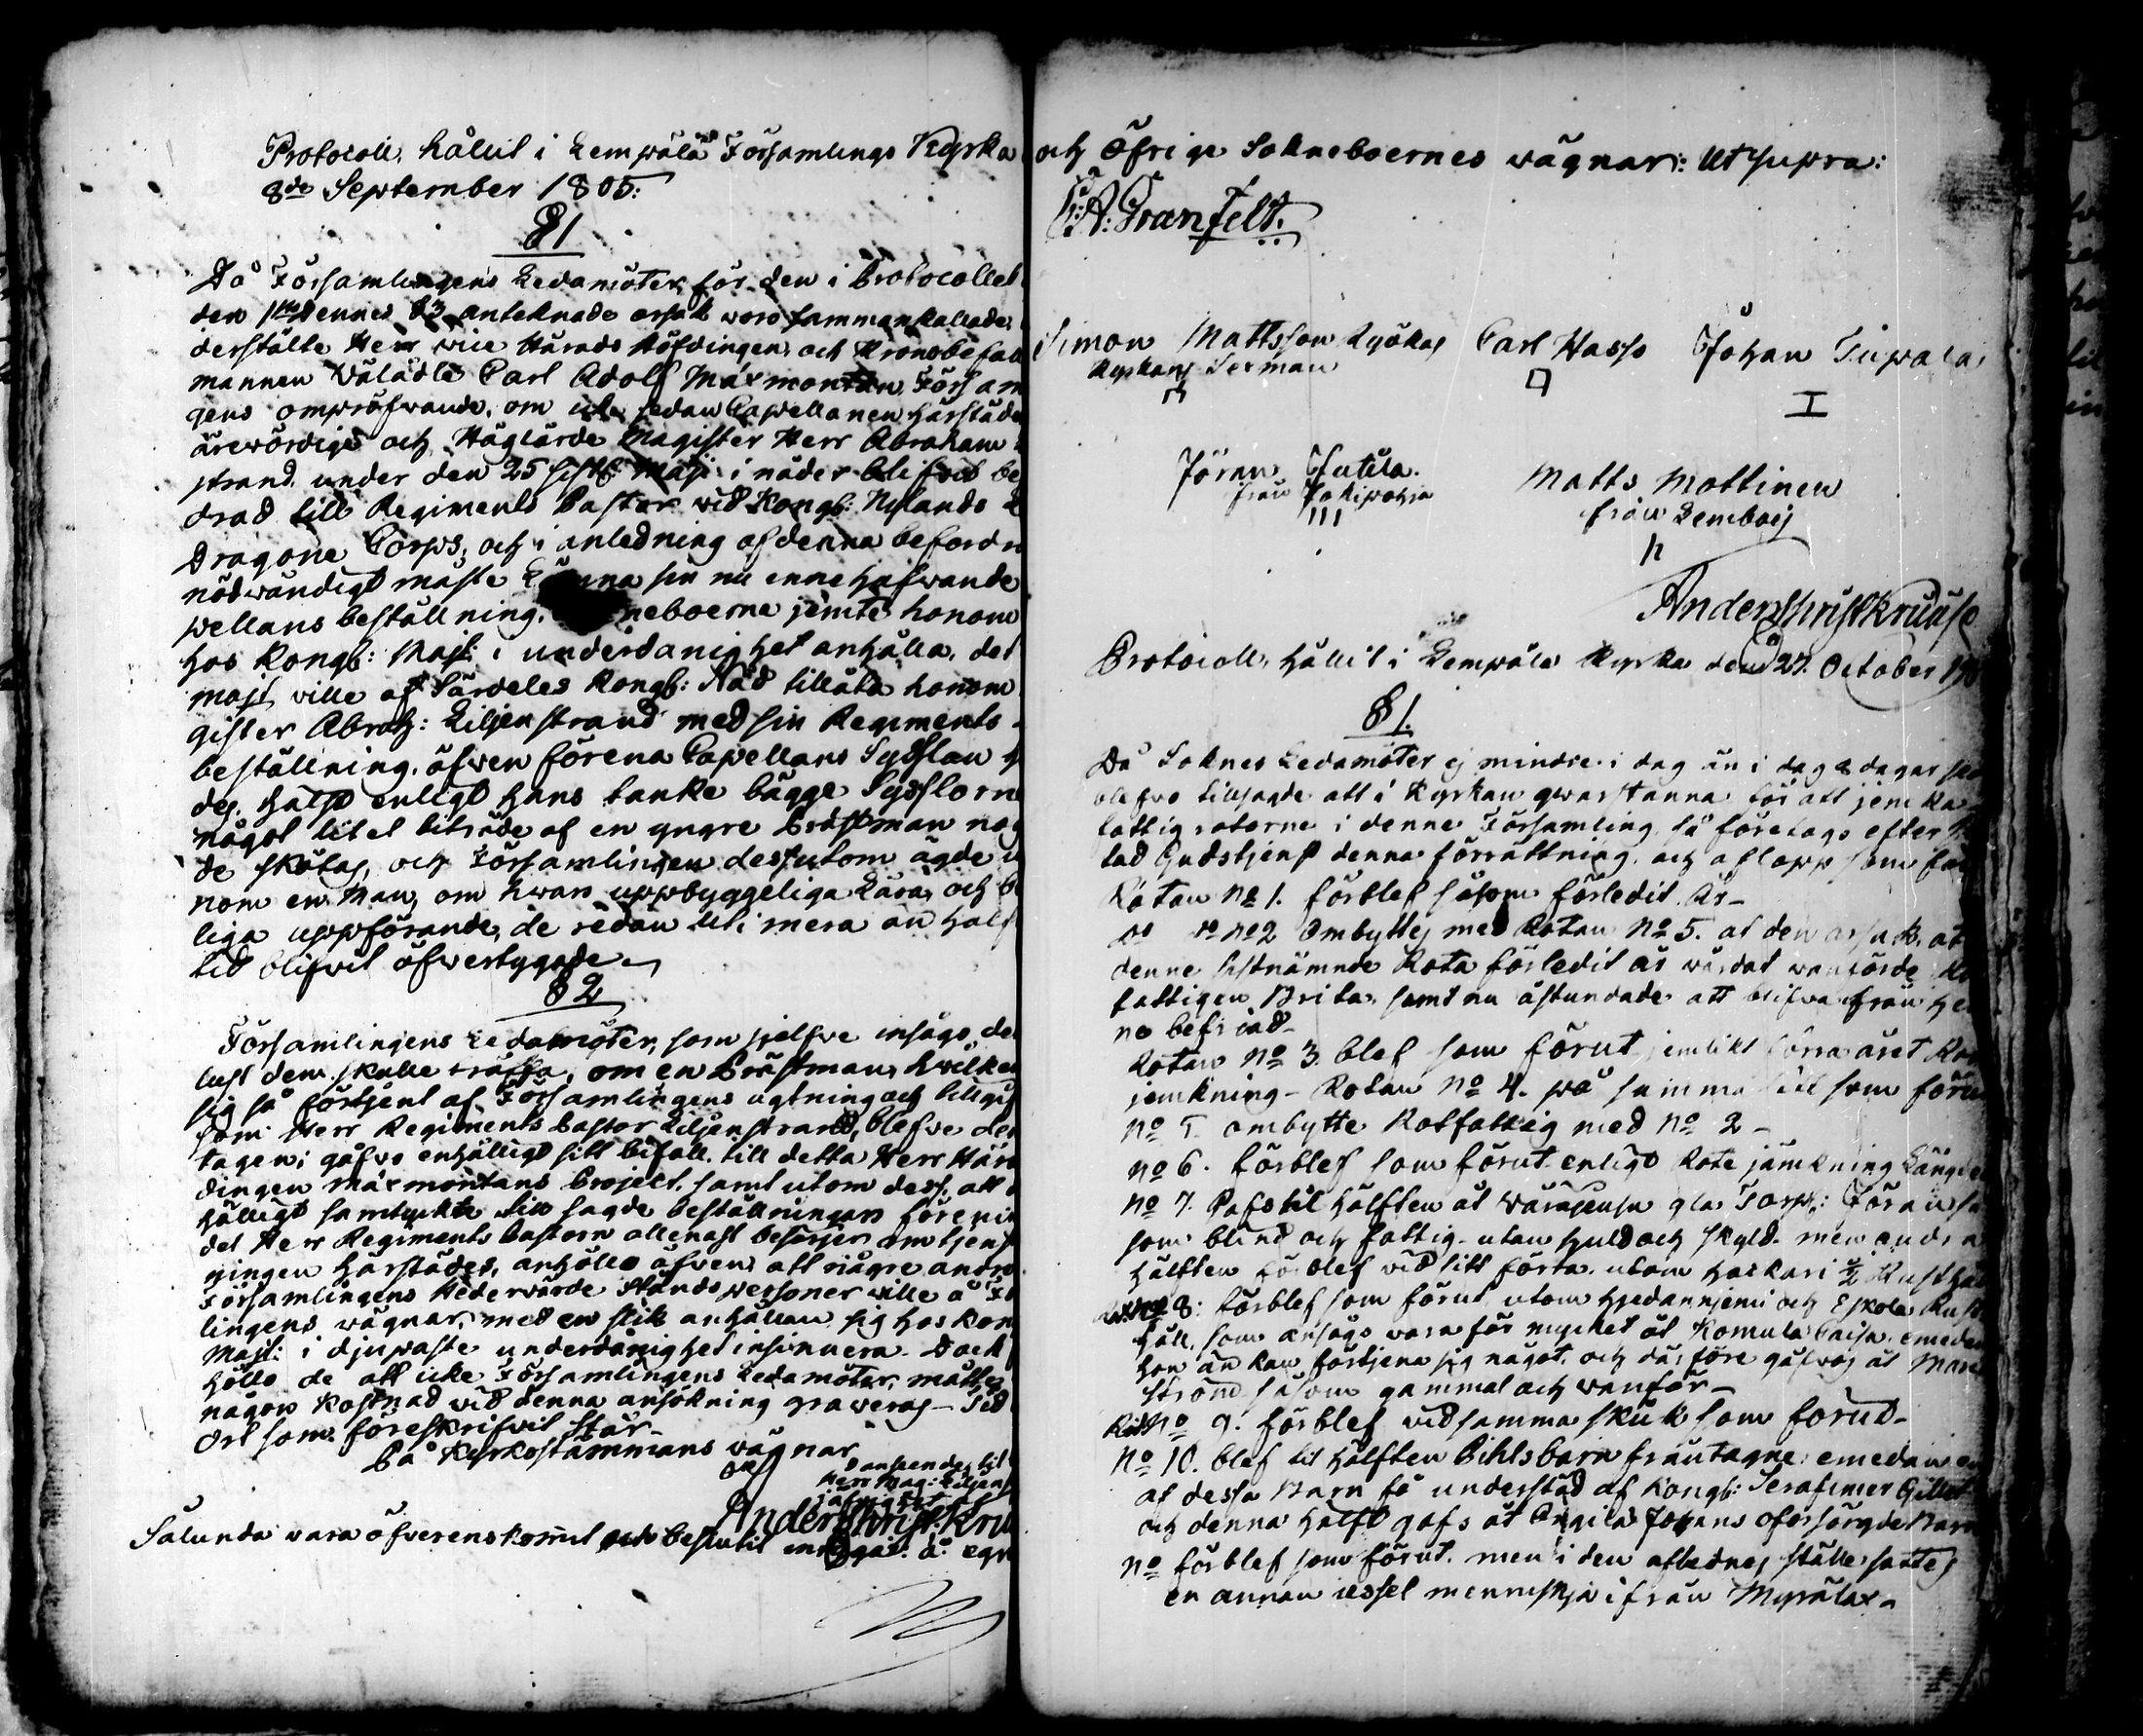 Protocoll, hållit i Lempälä Församlings Kyrka
8de September 1805:
§1
Då Församlingens Ledamöter för den i Protocollet
den 1ste dennes §3 anteknade orsak woro sammankallade,
derstälte Herr vice Härads Höfdingen och Kronobefall
mannen Wälädle Carl Adolf Märmontan Försam
gens ompröfwande, om icke, sedan Capellanen härstädes
ärewördige och Höglärde Magister Herr Abraham
strand under den 25 sistl: Maji i nåder blifvit be
drad till Regiments Pastor wid Kongl: Nylands
Dragone Corps, och i anledning af denna befordr
nödwändigt måste sin nu innehafwande
pellans beställning, neboerne jemte honom
hos Kongl: Majt: i underdånighet anhålla, det
Majt ville af Särdeles Kongl: Nåd tillåta honom
gister Abrah: Liljenstrand med sin Regiments
beställning, äfwen förena Capellans Sysslan
des, hälst enligt hans tanke bägge Sysslorne
något litet biträde af en yngre Prästman nog
de skötas, och Församlingen dessutom ägde i
nom en Man, om hwars uppbyggeliga Lära, och
liga uppförande, de redan uti mera än half
tid blifvit öfwertygade.
§2
Församlingens Ledamöter, som sjelfve insågo, de
lust dem skulle träffa, om en Prästman, hvilken
sig så förtjent af Församlingens agtning och tillgif
som Herr Regiments Pastor Liljenstrand, blefve dem
tagen; gåfvo enhälligt sitt bifall till detta Herr Här
dingen Märmontans Project, samt utom dess, att
hälligt samtyckte till sagde beställningars föreni
det Herr Regiments Pastorn allenast besörjer om tjenst
ningen härstädes, anhöllo äfven, att någre andre
Församlingens Hedervärde Stånds personer wille å
lingens vägnar, med en slik anhållan sig hos Kon
Majt: i djupaste underdånighet insinuera. Dock
höllo de att icke Församlingens Ledamöter, måtte
någon Kostnad wid denna ansökning graveras. Tid
Ort som föreskrifvit står.
På Kyrkostämmans vägnar
Herr Mag: Liljens
Anders Christ Kru
Sålunda vara öfverenskommit och beslutit intygas å egn
och öfrige Sokneboernes vägnar: Ut supra:
A: Tranfelt.
Simon Mattsson Kyökas Carl Hasso Johan Tupala,
Kyrkans Sexman
Jöran Jutila. Matts Mottinen
från från Lemboij
Anders Christ Kruuse
Protocoll, hållit i Lempälä Kyrka den 27. October
§1.
Då Soknes Ledamöter ej mindre i dag än i dag 8 dagar
blefvo tillsagde att i Kyrkan qwarstanna för att jemka
fattig rotorne i denne Församling, så företogs efter
tad Gudstjenst denna förrättning, och aflopp som
Rotan No 1. förblef såsom förledit År.
do do No 2 Ombyttes med Rotan No 5. af den orsak, at
denne sistnämnde Rota förledit år wårdat wanförde
fattigen Brita, samt nu åstundade att blifva ifrån he
ne befriad.
Rotan No 3. blef som förut jemlikt förra året Rot
jemkning. Rotan No 4. på samma sätt som förut
No 5. ombytte Rotfattig med No 2.
No 6. förblef som förut enligt Rote jämkning Längd
No 7. Gafs til hälften åt gla Torp:
som blind och fattig utan huld och skyld. men andra
hälften förblef vid sitt förra, utom Hackari ½ Rusthåll
No 8: förblef som förut utom Hjedannjemi och Eskola Rust
håll, som ansågs vara för mycket åt Komula Caisa, emedan
hon än kan förtjena sig något, och därföre gåfwos åt
ström såsom gammal och wanför.
No 9. förblef vid samma skick som förut.
No 10. blef til hälften Pihls barn fråntagne, emedan
af dessa Barn få understöd af Kongl: Serafimer Gillet
och denna hälft gafs åt Johans oförsörgde Barn
No förblef som förut, men i den aflednes ställe sattes
en annan uessel menniskja ifrån